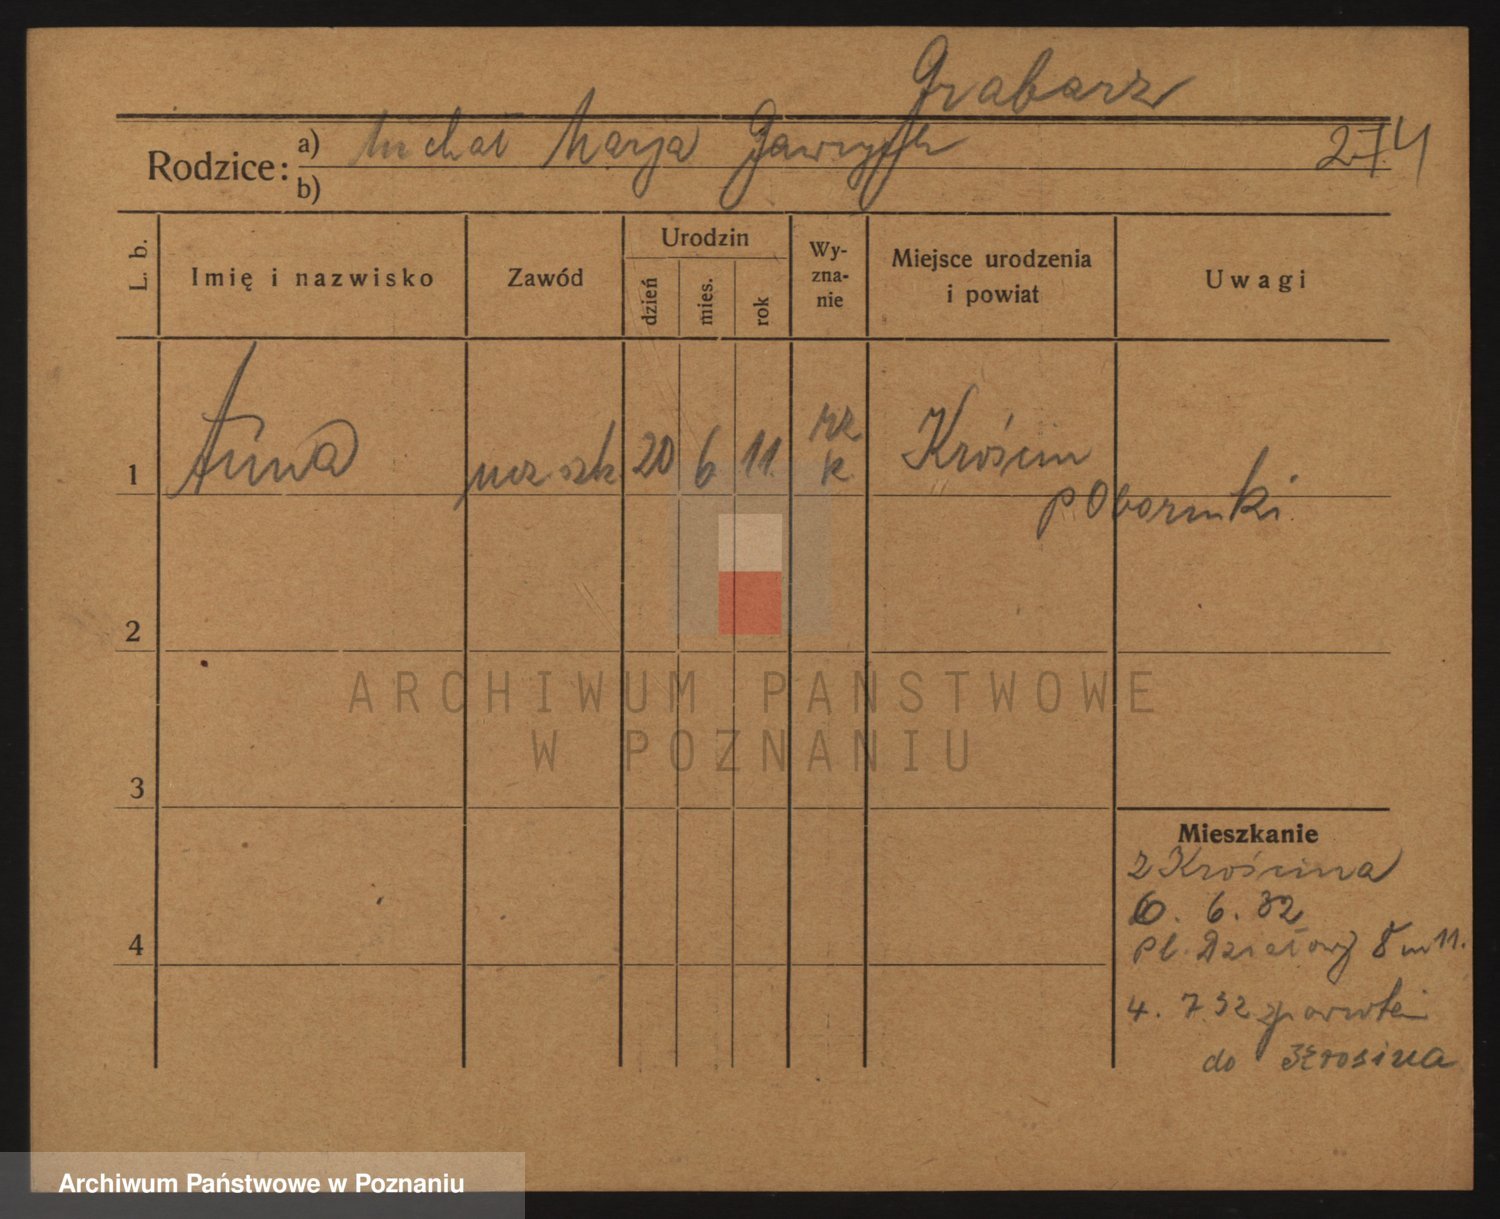 Grabarz
Rodzice: a) Michał Marja Gawrych 274
b)
L. b. Imię i nazwisko Zawód Urodzin dzień mies. rok Wy-zna-nie Miejsce urodzenia i powiat Uwagi
1 Anna 20 6 11 rz k Krościn
p Oborniki
2
ARCHIWUM PAŃSTWOWE
W POZNANIU
3
Mieszkanie
z Krościna
6. 6. 32
4
Pl. Działowy 8 m 11.
4. 7. 32 z powrotem
do Krosina
Archiwum Państwowe w Poznaniu